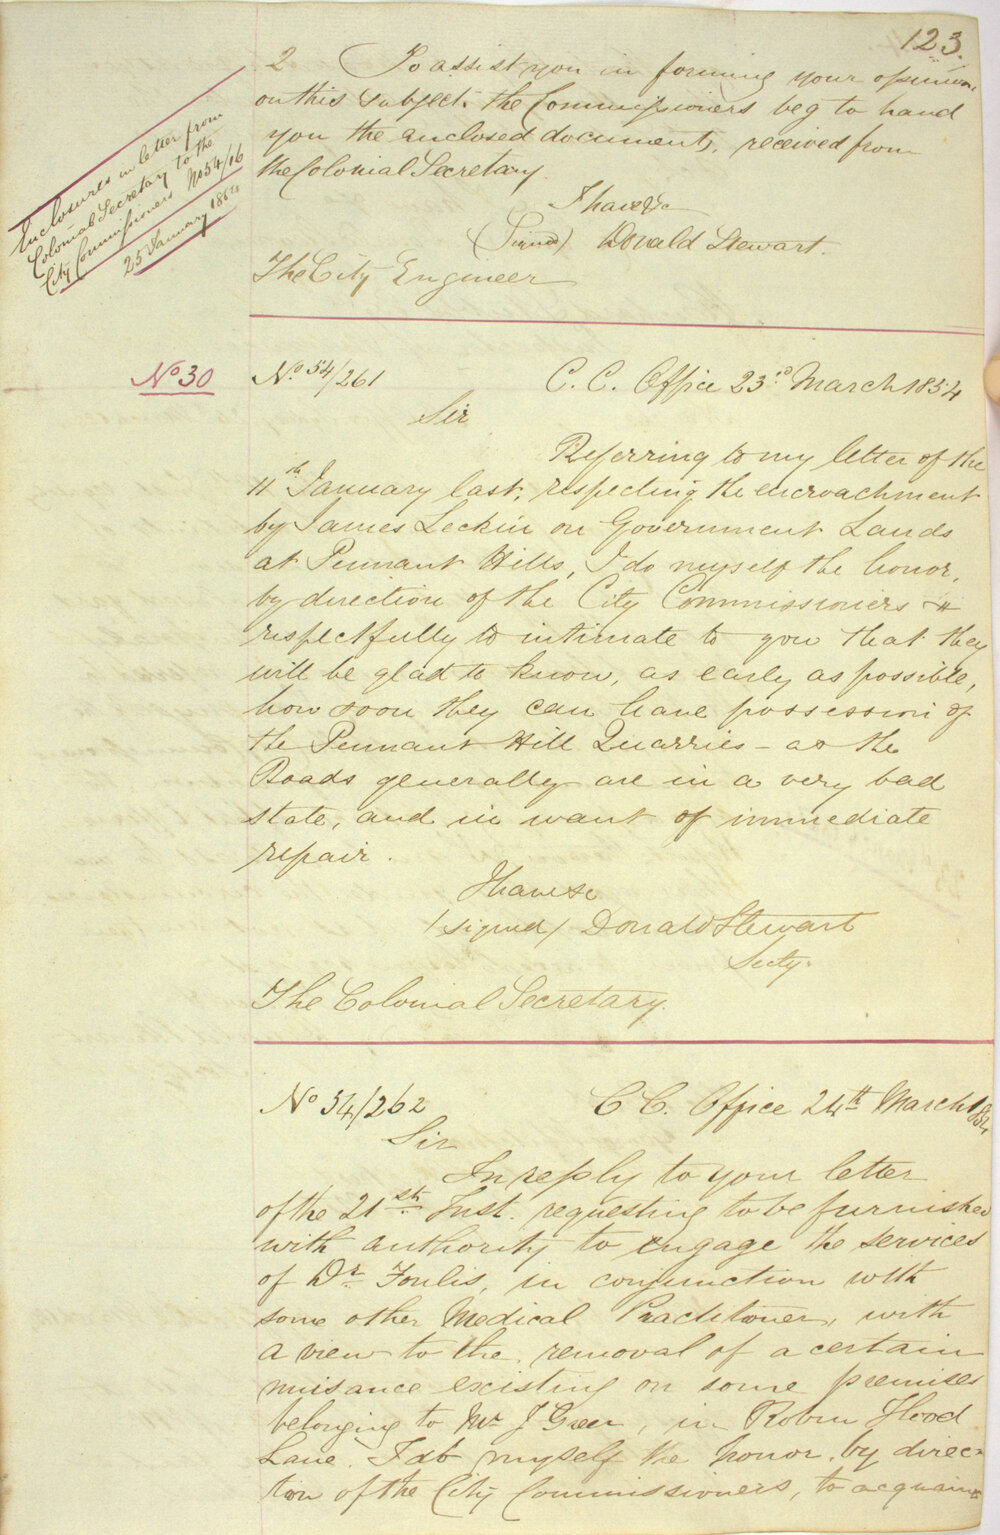 123.
2 To assist you in forming your opinion
on this subject. the Commissioners beg to hand
you the enclosed documents, received from
the Colonial Secretary.
I have &c
(Signed) Donald Stewart.
The City Engineer
Enclosures in letter from
Colonial Secretary to the
City Commissioners No 54/16
25 January 1854
No 30
No. 54/261 C. C. Office 23rd March 1854
Sir
Referring to my letter of the
11th January last, respecting the encroachment
by James Leckin on Government Lands
at Pennant Hills, I do myself the honor,
by direction of the City Commissioners
respectfully to intimate to you that they
will be glad to know, as early as possible,
how soon they can have possession of
the Pennant Hill Quarries - as the
Roads generally are in a very bad
state, and in want of immediate
repair.
I have &c
/signed/ Donald Stewart
Secty.
The Colonial Secretary.
No 54/262 C C. Office 24th March 1854
Sir
In reply to your letter
of the 21st Inst. requesting to be furnished
with authority to engage the services
of Dr. Foulis, in conjunction with
some other Medical Practitioner, with
a view to the removal of a certain
nuisance existing on some premises
belonging to Mr J Green, in Robin Hood
Lane. I do myself the honor, by direc-
tion of the City Commissioners, to acquaint